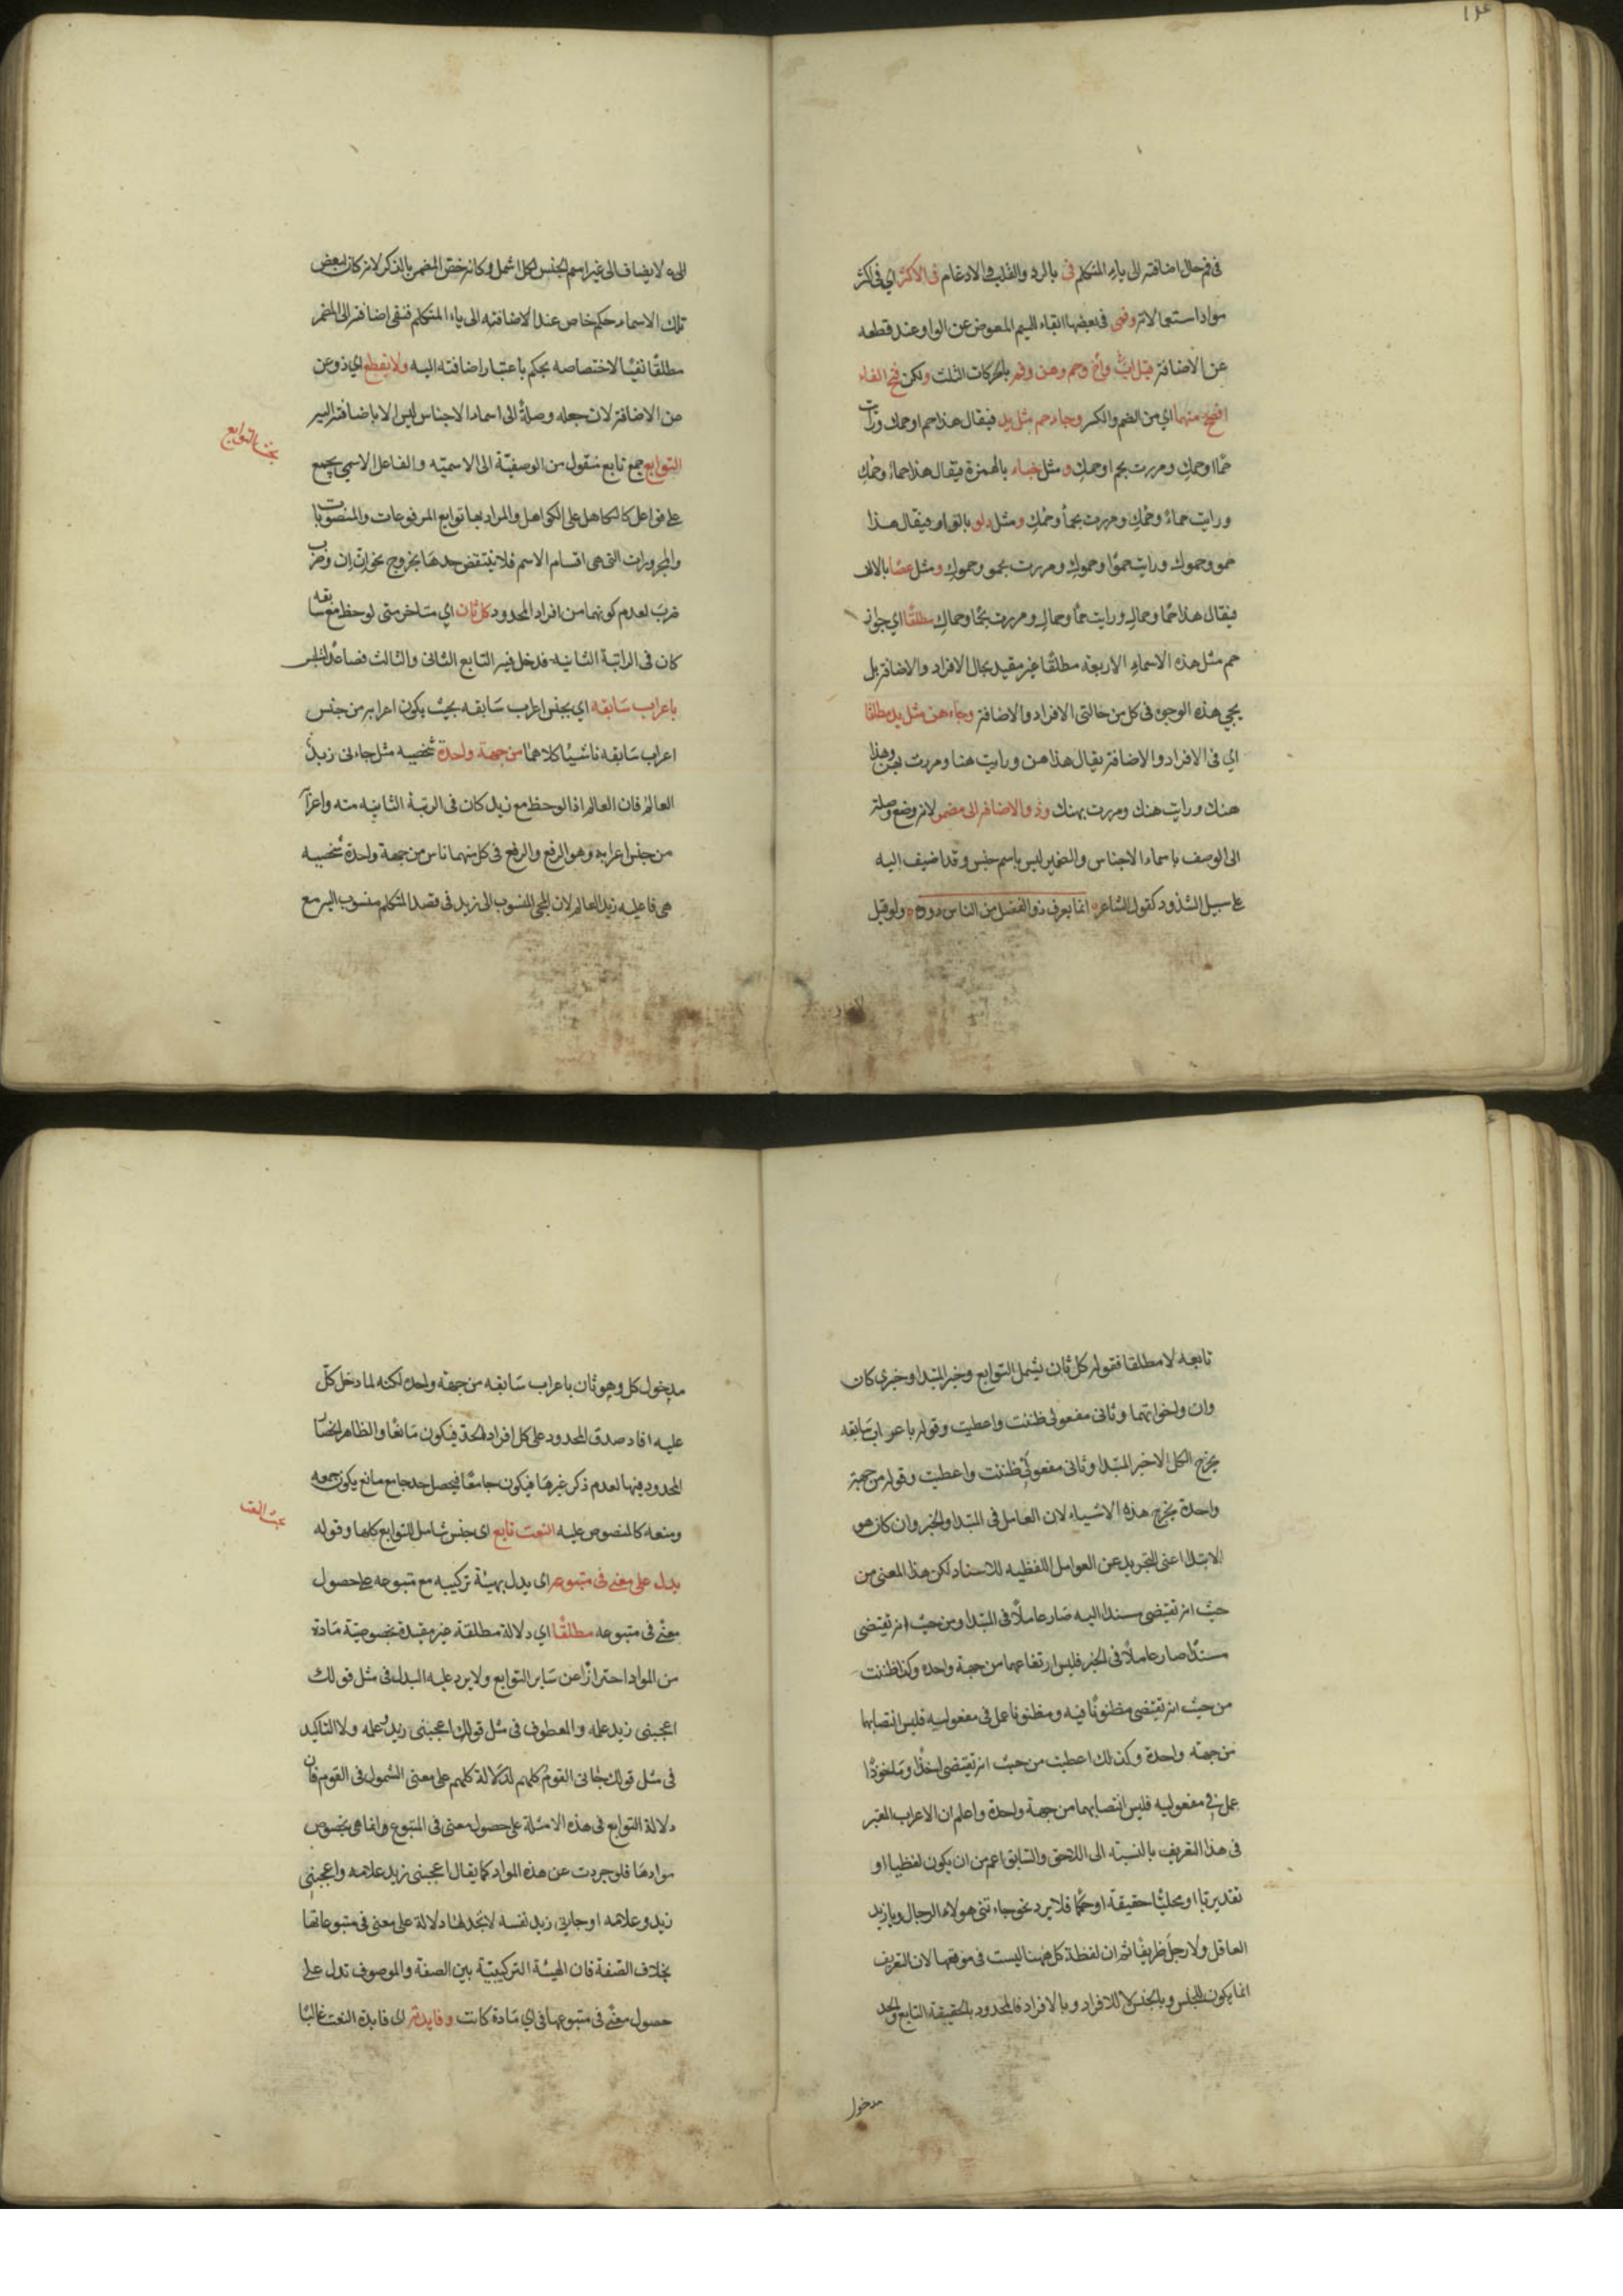 ١٢٤
فى فم حال اضافته الى ياء المتكلم فىّ بالرد والقلب والادغام فى الاكثر اي فى اكثر
موارد استعمالاته وفمى فى بعضها ابقاء للميم المعوض عن الواو عند قطعه
عن الاضافة قيل اب واخ وحم وهن وفم بالحركات الثلث ولكن فتح الفاء
افصح منهما اي من الضم والكسر وجاء حم مثل يد فيقال هذا حم او حمك ورايت
حمًا او حمك ومررت بحم او حمك و مثل خباء بالهمزة فيقال هذا حماء وحمك
ورايت حماء وحمك ومررت بحمأ وحمك ومثل دلو بالواو فيقال هذا
حمو وحموك ورايت حموًا وحموك ومررت بحمو وحموك ومثل عصًا بالالف
فيقال هذا حمًا وحماك ورايت حمًا وحماك ومررت بحمًا وحماك مطلقًا اي جواز
حم مثل هذه الاسماء الاربعة مطلقًا غير مقيد بحال الافراد والاضافة بل
يجي هذه الوجوه فى كل من حالتى الافراد والاضافة وجاء هن مثل يد مطلقا
اي فى الافراد والاضافة يقال هذا هن ورايت هنا ومررت بهن وهذا
هنك ورايت هنك ومررت بهنك وذو لا يضاف الى مضمر لانه وضع وصلة
الى الوصف باسماء الاجناس والضمير ليس باسم جنس وقد اضيف اليه
على سبيل الشذوذ كقول الشاعر انما يعرف ذو الفضل من الناس ذووه ولو قيل
الىء لا يضاف الى غير اسم الجنس لكل اشمل وكانه خص المضمر بالذكر لانه كان لبعض
تلك الاسماء حكم خاص عند الاضافته الى ياء المتكلم فنفى اضافته الى المضمر
مطلقًا نفيًا لاختصاصه بحكم باعتبار اضافته اليه ولا يقطع اي ذو عن
عن الاضافة لان جعله وصلةً الى اسماء الاجناس ليس الا باضافته اليه
بحث التوابع
التوابع جمع تابع منقول من الوصفيّة الى الاسميّه والفاعل الاسمي يجمع
على فواعل كالكاهل على الكواهل والمراد بها توابع المرفوعات والمنصوبات
والمجرورات التى هى اقسام الاسم فلا ينتقض حدها بخروج نحو ان ان وضرب
ضرب لعدم كونهما من افراد المحدود كل ثان اي متاخر متى لوحظ مع سابقه
كان فى الراتبة الثانيه فدخل فيه التابع الثانى والثالث فصاعدا ملتبس
باعراب سابقه اي بجنس اعراب سابقه بحيث يكون اعرابه من جنس
اعراب سابقه ناشيًا كلاهما من جهة واحدة شخصيه مثل جاءنى زيد
العالم فان العالم اذا لوحظ مع زيد كان فى الرتبة الثانيه منه واعرابه
من جنس اعرابه وهو الرفع والرفع فى كل منهما ناس من جهة واحدة شخصيه
هى فاعليه زيد العالم لان المجى المنسوب الى زيد فى قصد المتكلم منسوب اليه مع
تابعه لا مطلقا فقوله كل ثان يشمل التوابع وخبر المبتدا وخبري كان
وان واخواتهما وثانى مفعولى ظننت واعطيت وقوله باعراب سابقه
يخرج الكل الا خبر المبتدا وثانى مفعولي ظننت واعطيت وقوله من جهة
واحدة يخرج هذه الاشياء لان العامل فى المبتدا والخبر وان كان هو
الابتدا اعنى التجريد عن العوامل اللفظيه للاسناد لكن هذا المعنى من
حيث انه تقتضى مسندا اليه صار عاملاً فى المبتدا ومن حيث انه تقتضى
مسندًا صار عاملاً فى الخبر فليس ارتفاعهما من جهة واحدة وكذا ظننت
من حيث انه تقتضى مظنونًا فيه ومظنونا عمل فى مفعوليه فليس انتصابهما
من جهة واحدة وكذلك اعطيت من حيث انه تقتضى اخذًا وماخوذًا
عمل فى مفعوليه فليس انتصابهما من جهة واحدة واعلم ان الاعراب المعتبر
فى هذا التعريف بالنسبة الى اللاحق والسابق اعم من ان يكون لفظيا او
تقديريًا او محليًا حقيقة او حكمًا فلا يرد نحو جاءتنى هولاء الرجال ويا زيد
العاقل ولا رجل ظريفًا ثم ان لفظة كل ههنا ليست فى موقعها لان التعريف
انما يكون للجنس وبالجنس لا للافراد وبالافراد فالمحدود بالحقيقة التابع والحد
مدخول
مدخول كل وهو ثان باعراب سابقه من جهة واحدة لكنه لما دخل كلّ
عليه افاد صدق المحدود على كل افراد الحد فيكون مانعًا والظاهر انحصار
المحدود فيها لعدم ذكر غيرها فيكون جامعًا فيحصل حد جامع مانع يكون جمعه
بحث النعت
ومنعه كالمنصوص عليه النعت تابع اى جنس شامل للتوابع كلها وقوله
يدل على معنى فى متبوعه اى يدل بهيئة تركيبه مع متبوعه على حصول
معنى فى متبوعه مطلقًا اي دلالة مطلقة غير مقيدة بخصوصيّة مادة
من المواد احترازًا عن سائر التوابع ولا يرد عليه البدل فى مثل قولك
اعجبنى زيد علمه والمعطوف فى مثل قولك اعجبنى زيد وعلمه ولا التاكيد
فى مثل قولك جانى القوم كلهم لدلالة كلهم على معنى الشمول فى القوم فان
دلالة التوابع فى هذه الامثلة على حصول معنى فى المتبوع وانما هى بخصوص
موادها فلو جردت عن هذه المواد كما يقال اعجبنى زيد غلامه واعجبنى
زيد وغلامه او جاءنى زيد نفسه لا تجد لها دلالة على معنى فى متبوعاتها
بخلاف الصّفة فان الهيئة التركيبيّة بين الصفة والموصوف تدل على
حصول معنى فى متبوعها فى اي مادة كانت وفايدته اى فايدة النعت غالبًا